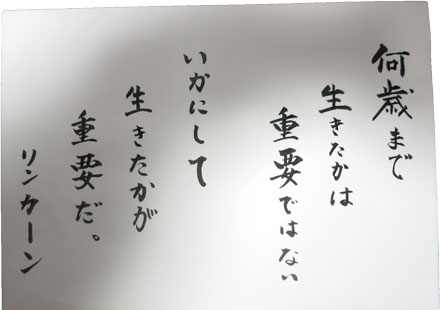 何歳まで
生きたかは
重要ではない
いかにして
生きたかが
重要だ。
リンカーン